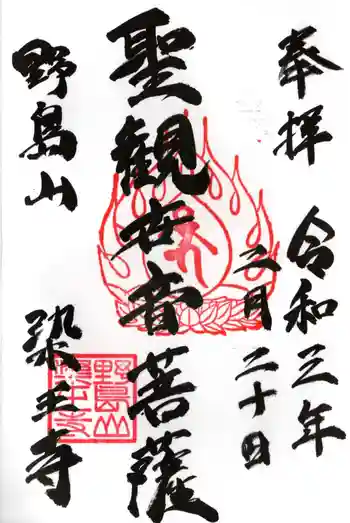 奉拝 令和三年
二月二十日
聖観世音菩薩
野島山 染王寺
野島山
染王寺